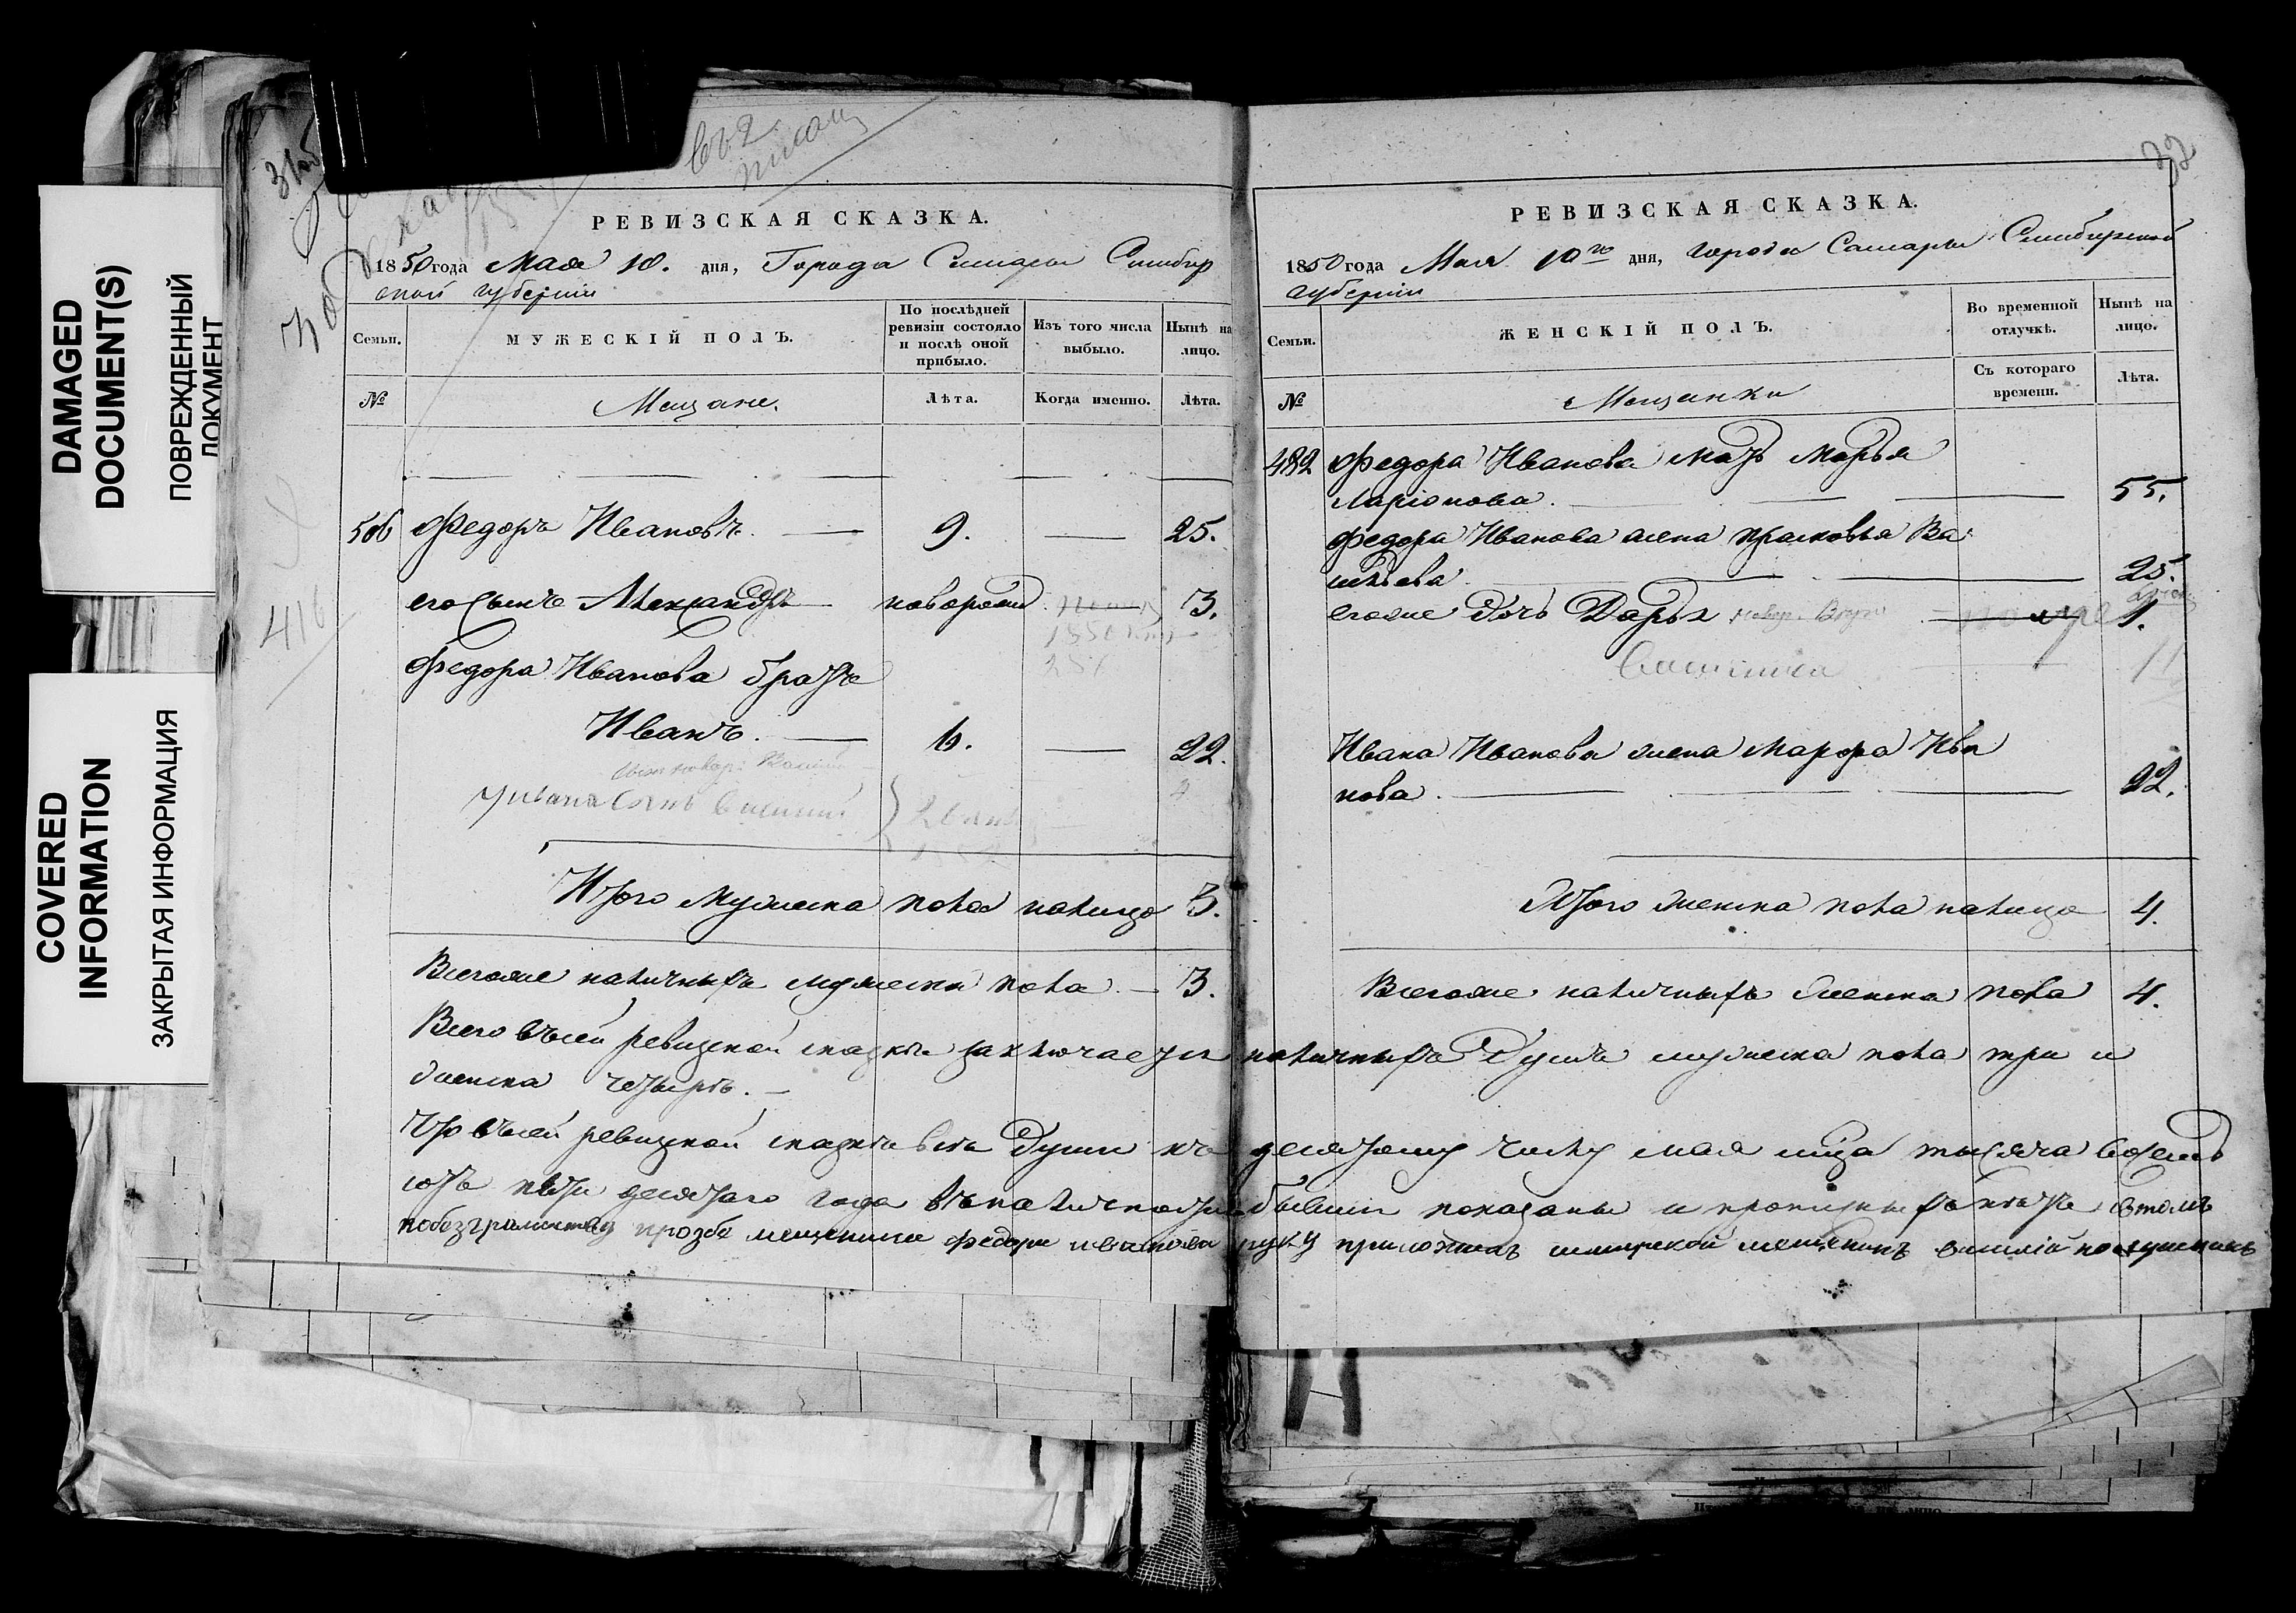 DAMAGED
DOCUMENT(S)
ПОВРЕЖДЕННЫЙ
ДОКУМЕНТ
COVERED
INFORMATION
ЗАКРЫТАЯ ИНФОРМАЦИЯ
416
РЕВИЗСКАЯ СКАЗКА.
1850 года Мая 10. дня, Города Самары Симбир
ской губернiи
Семьи.
МУЖЕСКIЙ ПОЛЪ.
По послѣдней ревизiи состояло и послѣ оной прибыло.
Изъ того числа выбыло.
Нынѣ на лицо.
№
Мещане.
Лѣта.
Когда именно.
Лѣта.
506 Федоръ Ивановъ. — 9. — 25.
его сынъ Александръ новорожд 3.
Федора Иванова братъ
Иванъ. — 6. — 22.
Итого мужеска пола налицо 3.
Всегоже наличныхъ мужеска пола — 3.
РЕВИЗСКАЯ СКАЗКА.
1850 года Мая 10го дня, города Самары Симбирской
губернiи
Семьи.
ЖЕНСКIЙ ПОЛЪ.
Во временной отлучкѣ.
Нынѣ на лицо.
№
Мещанки
Съ котораго времени.
Лѣта.
482 Федора Иванова мать Марья
Ларiонова. — 55.
Федора Иванова жена Прасковья Ва
сильева — 25.
егоже дочь Дарья 1.
Ивана Иванова жена Марфа Ива
нова. — 22.
Итого женска пола налицо 4.
Всегоже наличныхъ женска пола 4.
Всего въ сей ревизской сказкѣ заключается наличныхъ душъ мужеска пола три и
женска четыре. —
Что въ сей ревизской сказкѣ всѣ души къ десятому числу мая мца тысяча восемь
сотъ пятидесятаго года въ наличности бывшiи показаны и прописныхъ нѣтъ втомъ
побезграмотству прозбе мещенина федора иванова руку приложилъ самарской мещенинъ василiй